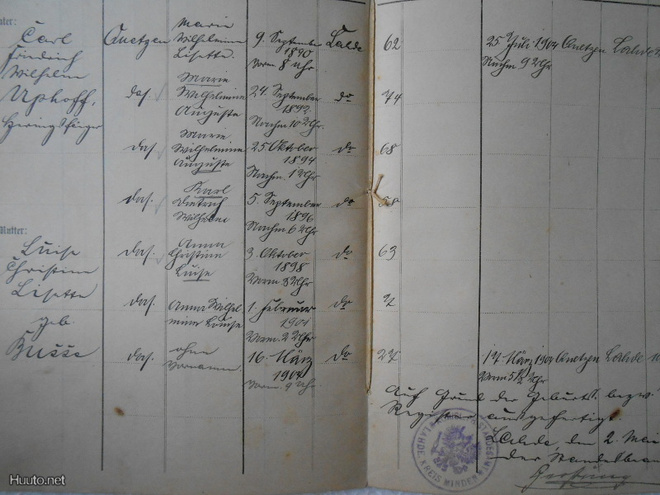 Vater:
Carl
Friedrich
Wilhelm
Uphoff,
Heringsfänger
Mutter:
Luise
Christine
Lisette
geb
Busse
Quetzen
Marie
Wilhelmine
Lisette.
9. September
1890
Vorm 8 Uhr
Lahde
62
25. Juli 1904 Quetzen Lahde
Nachm 9 Uhr
das.
Marie
Wilhelmine
Auguste
24. September
1892
Nachm 10 Uhr.
do
74
das.
Marie
Wilhelmine
Auguste
25. Oktober
1894
Nachm. 1 Uhr
do
68
das.
Karl
Dietrich
Wilhelm
5. September
1896
Nachm 6 Uhr
do
das.
Anna
Christine
Luise
3. Oktober
1898
Vorm 8 Uhr
do
63
das.
Anna Wilhel
mine Louise
1. Februar
1901
Vorm. 2 Uhr
do
das.
ohne
Vornamen
16. März
1904
Vorm. 9 Uhr
do
27
17. März 1904 Quetzen Lahde
Vorm 5½ Uhr
Auf Grund der Geburts- bezw.
Register ausgefertigt.
Lahde den 2. Mai
Der Standesbea
LAHDE KREIS MINDEN
Huuto.net